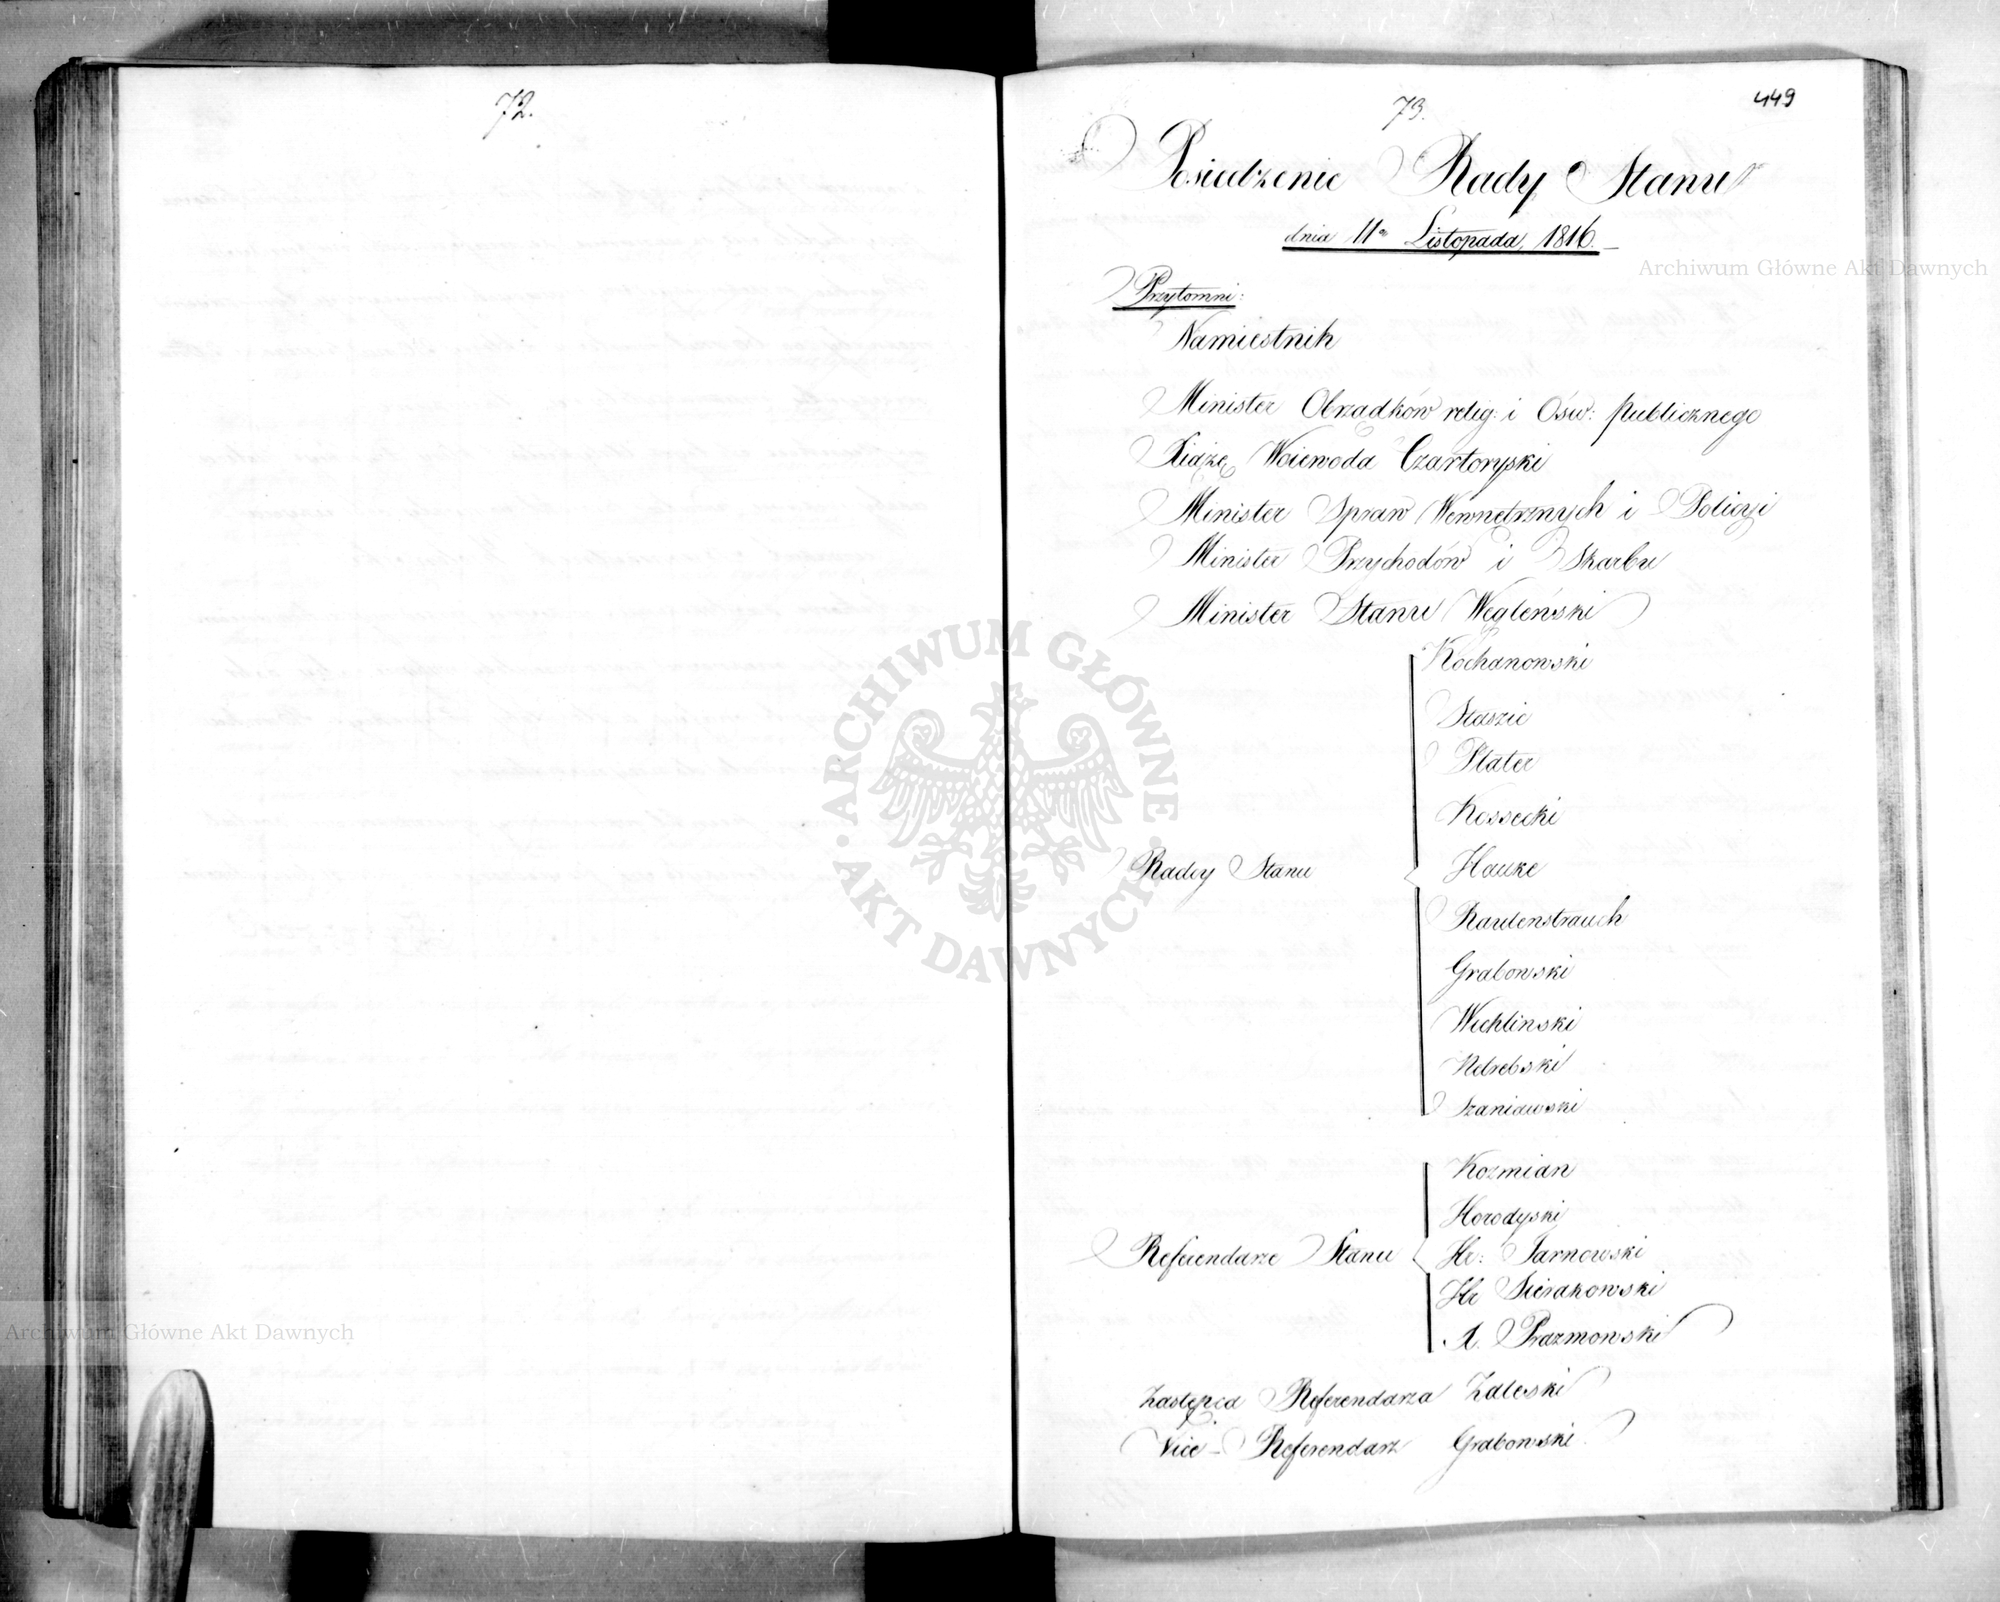 72.
73.
449
Posiedzenie Rady Stanu
dnia 11go Listopada 1816.
Archiwum Główne Akt Dawnych
Przytomni:
Namiestnik
Minister Obrządków relig: i Ośw: publicznego
Xiąże Woiewoda Czartoryski
Minister Spraw Wewnętrznych i Policyi
Minister Przychodów i Skarbu
Minister Stanu Węgleński
Radcy Stanu
Kochanowski
Staszic
Plater
Kossecki
Hauke
Rautenstrauch
Grabowski
Wichlinski
Netrebski
Szaniawski
Referendarze Stanu
Kozmian
Horodyski
Hr: Tarnowski
Hr Sierakowski
A. Prazmowski
Zastępca Referendarza Zaleski
Vice-Referendarz Grabowski.
ARCHIWUM GŁÓWNE
AKT DAWNYCH
Archiwum Główne Akt Dawnych